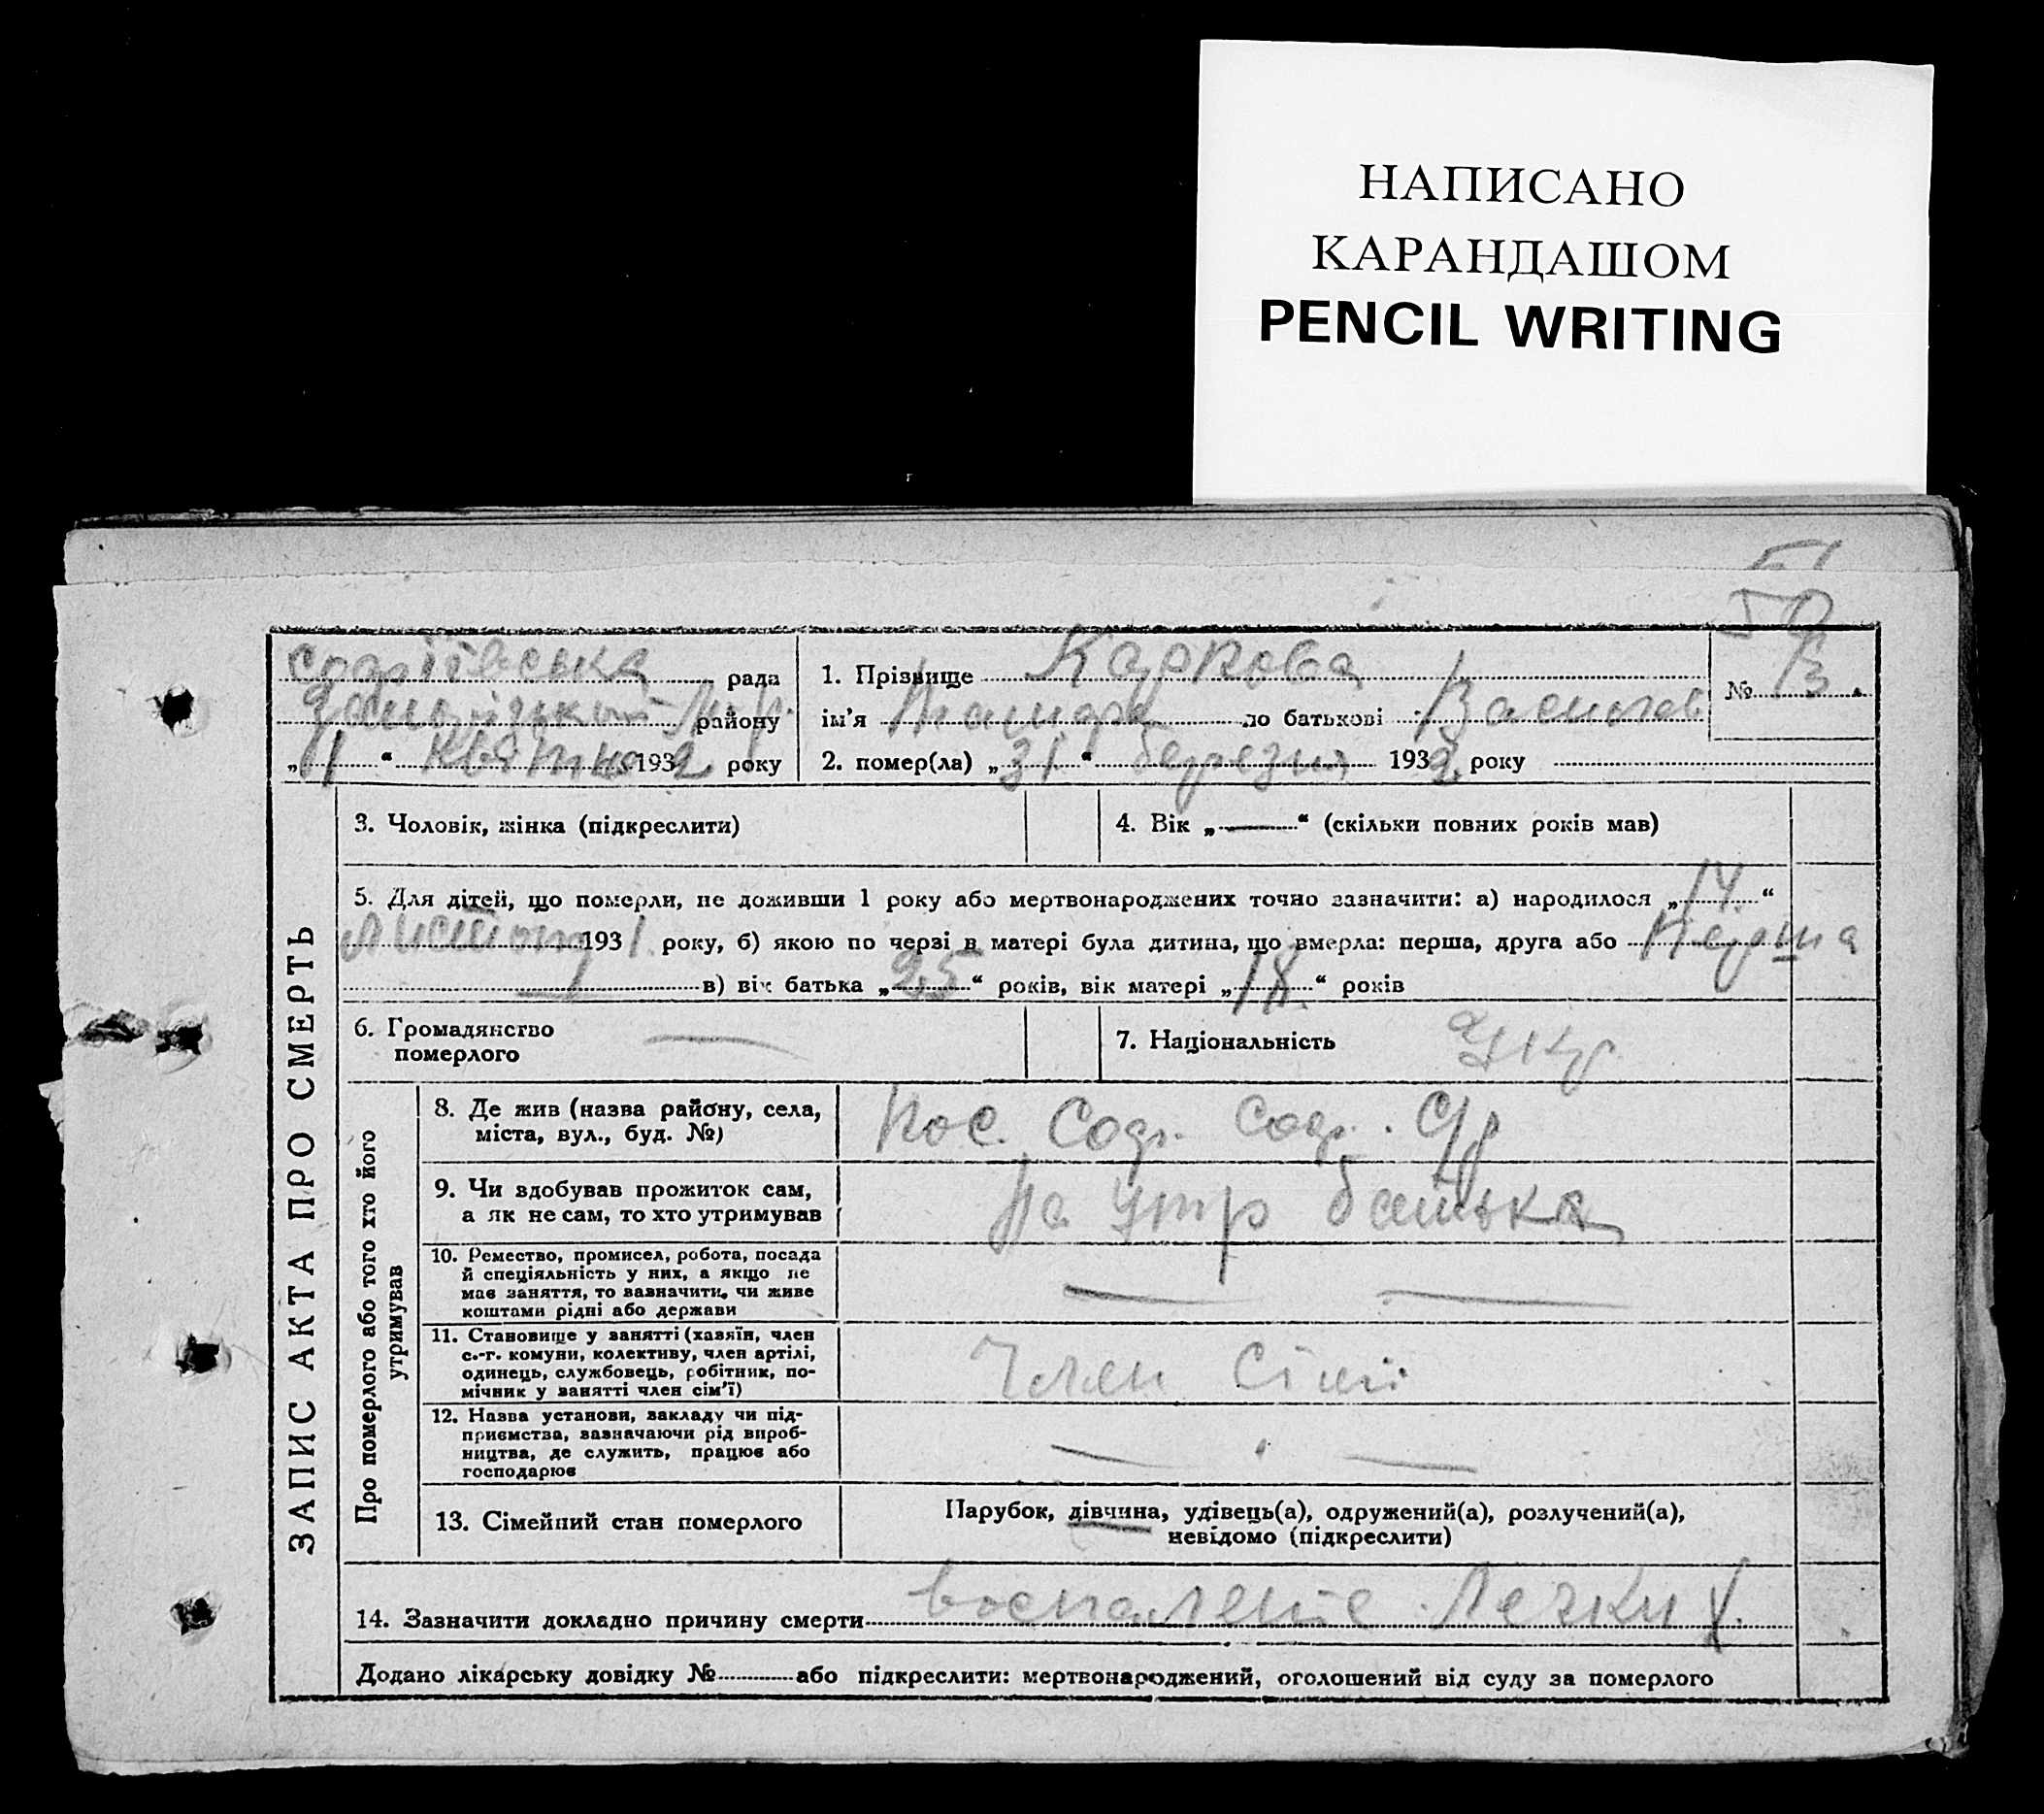 НАПИСАНО
КАРАНДАШОМ
PENCIL WRITING
51
50
Софіївська рада
району
„1“ Квітня 1932 року
1. Прізвище Каркова
ім'я по батькові Васильов
№ 13.
2. помер(ла) „31“ березня 1932 року
ЗАПИС АКТА ПРО СМЕРТЬ
3. Чоловік, жінка (підкреслити)
4. Вік „—“ (скільки повних років мав)
5. Для дітей, що померли, не доживши 1 року або мертвонароджених точно зазначити: а) народилося „14“
Листопад 1931 року, б) якою по черзі в матері була дитина, що вмерла: перша, друга або Перша
в) вік батька „25“ років, вік матері „18“ років
6. Громадянство
померлого —
7. Національність Укр
Про померлого або того хто його
утримував
8. Де жив (назва району, села,
міста, вул., буд. №)
пос. Соф. Соф. С/р
9. Чи вдобував прожиток сам,
а як не сам, то хто утримував
На утр батька
10. Ремество, промисел, робота, посада
й спеціяльність у них, а якщо не
має заняття, то вазначити, чи живе
коштами рідні або держави
— —
11. Становище у занятті (хазяїн, член
с.-г. комуни, колективу, член артілі,
одинець, службовець, робітник, по-
мічник у занятті член сім'ї)
Член Сімї
12. Назва установи, закладу чи під-
приємства, вазначаючи рід вироб-
ництва, де служить, працює або
господарює
— —
13. Сімейний стан померлого
Парубок, дівчина, удівець(а), одружений(а), розлучений(а),
невідомо (підкреслити)
14. Зазначити докладно причину смерти воспаленіе Легких.
Додано лікарську довідку № або підкреслити: мертвонароджений, оголошений від суду за померлого